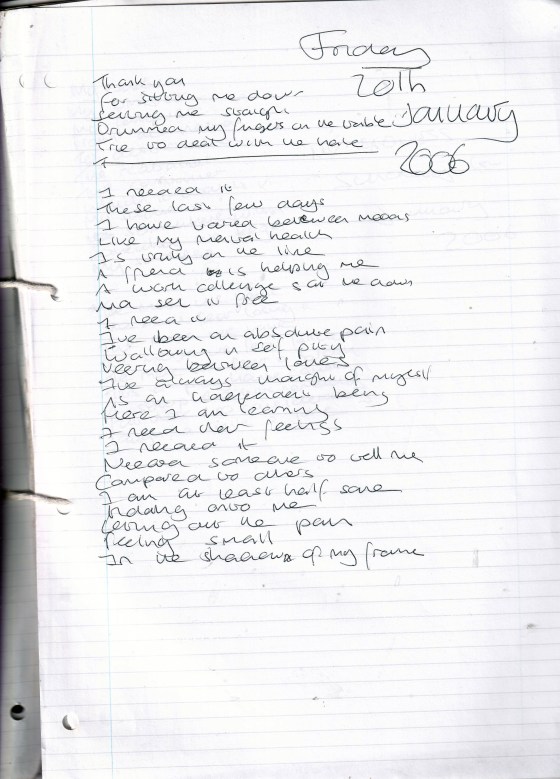 Friday
20th
January
2006
Thank you
For sitting me down
Setting me straight
Drummed my fingers on the table
Trie to deal with the hate
I needed it
These last few days
I have varied between moods
Like my mental health
Is truly on the line
A friend is helping me
A work colleage sat me down
And set it free
I need it
I've been an absolute pain
Wallowing in self pity
Veering between loves
I've always thought of myself
As an independent being
Here I am learning
I need their feelings
I needed it
Needed someone to tell me
Compared to others
I am at least half sane
Holding onto me
Letting out the pain
Feeling small
In the shadows of my frame